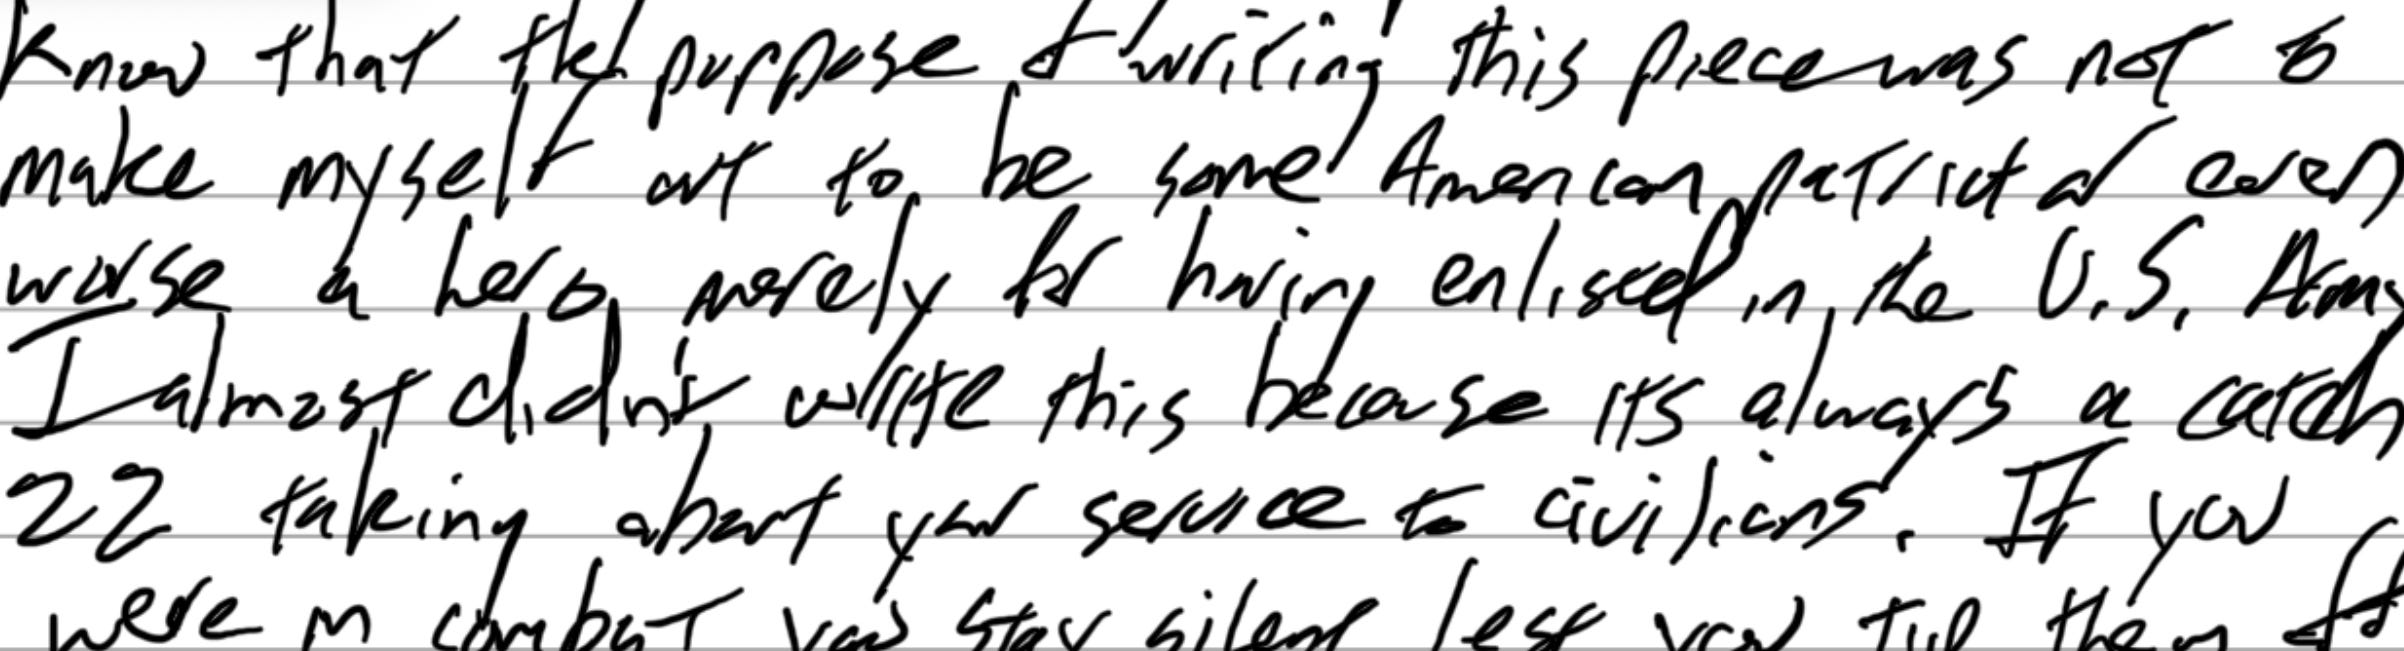 Know that the purpose of writing this piece was not to
make myself out to be some American patriot or even
worse a hero merely for having enlisted in the U.S. Army
I almost didn't write this because its always a catch
22 talking about your service to civilians. If you
were in combat you stay silent lest you tip them off